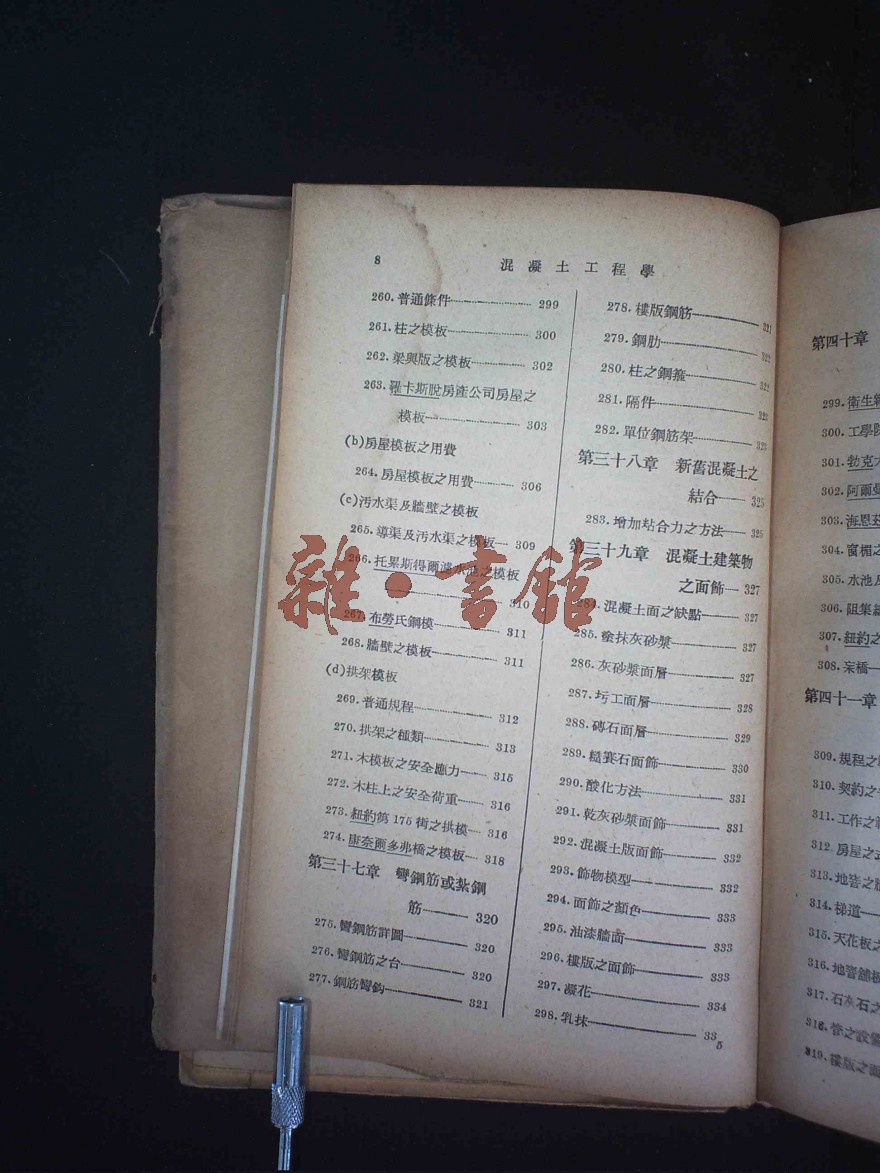 8
混凝土工程學
260.普通條件 299
261.柱之模板 300
262.梁與版之模板 302
263.羅卡斯脫房產公司房屋之
模板 303
(b)房屋模板之用費
264.房屋模板之用費 306
(c)污水渠及牆壁之模板
265.導渠及污水渠之模板 309
266.托累斯得爾濾水池之模板
310
267.布勞氏鋼模 311
268.牆壁之模板 311
(d)拱架模板
269.普通規程 312
270.拱架之種類 313
271.木模板之安全應力 315
272.木柱上之安全荷重 316
273.紐約第175街之拱模 316
274.康奈爾多弗橋之模板 318
第三十七章 彎鋼筋或紮鋼
筋 320
275.彎鋼筋詳圖 320
276.彎鋼筋之台 320
277.鋼筋彎鈎 321
278.樓版鋼筋 321
279.鋼肋 322
280.柱之鋼箍 322
281.隔件 323
282.單位鋼筋架 323
第三十八章 新舊混凝土之
結合 325
283.增加坫合力之方法 325
第三十九章 混凝土建築物
之面飾 327
284.混凝土面之缺點 327
285.塗抹灰砂漿 327
286.灰砂漿面層 327
287.圬工面層 328
288.磚石面層 329
289.糙賽石面飾 330
290.酸化方法 331
291.乾灰砂漿面飾 331
292.混凝土版面飾 332
293.飾物模型 332
294.面飾之顏色 333
295.油漆牆面 333
296.樓版之面飾 333
297.凝花 334
298.乳抹 335
第四十章
299.衛生
300.工學
301.勃克
302.阿爾曼
303.海恩
304.窗楣之
305.水池
306.阻集
307.紐約之
308.
第四十一章
309.規程之
310.契約之
311.工作之
312.房屋之
313.地窖之
314.梯道
315.天花板之
316.地窖舖
317.石灰石之
318.管之設備
319.樓版之面
雜·書館